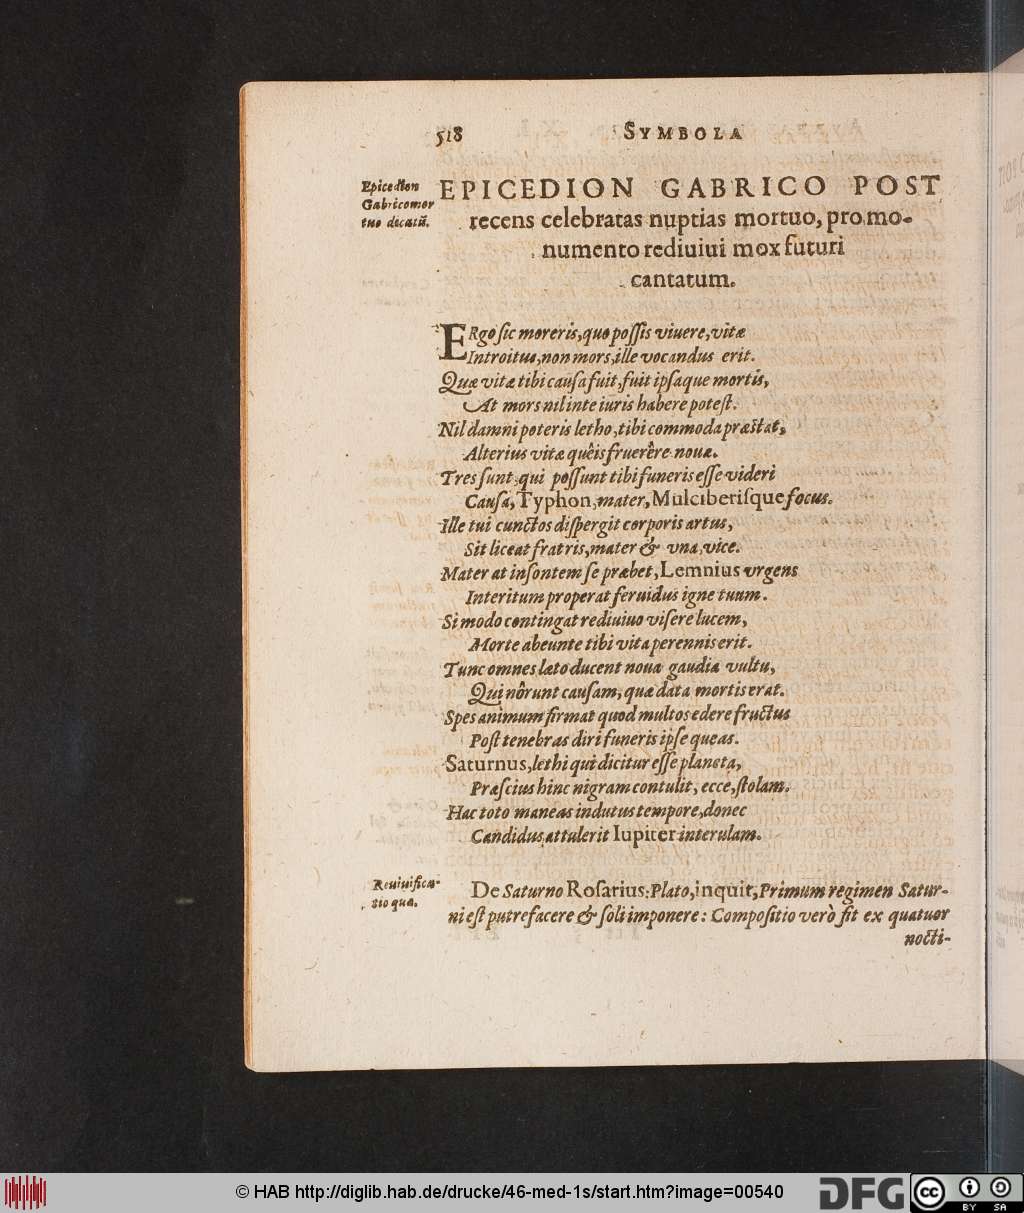 518 SYMBOLA
Epicedion
Gabrico mor
tuo decātū.
EPICEDION GABRICO POST
recens celebratas nuptias mortuo, pro mo-
numento rediuiui mox futuri
cantatum.
ERgo ſic moreris, quo poſſis viuere, vitæ
Introitus, non mors, ille vocandus erit.
Quæ vitæ tibi cauſa fuit, fuit ipſaque mortis,
At mors nil in te iuris habere poteſt.
Nil damni poteris letho, tibi commoda præstat,
Alterius vitæ quêis fruerêre nouæ.
Tres ſunt, qui poſſunt tibi funeris eſſe videri
Cauſa, Typhon, mater, Mulciberiſque focus.
Ille tui cunctos diſpergit corporis artus,
Sit liceat fratris, mater & vna, vice.
Mater at inſontem ſe præbet, Lemnius vrgens
Interitum properat feruidus igne tuum.
Si modo contingat rediuiuo viſere lucem,
Morte abeunte tibi vita perennis erit.
Tunc omnes læto ducent noua gaudia vultu,
Qui nôrunt cauſam, quæ data mortis erat.
Spes animum firmat quod multos edere fructus
Poſt tenebras diri funeris ipſe queas.
Saturnus, lethi qui dicitur eſſe planeta,
Præſcius hinc nigram contulit, ecce, ſtolam.
Hac toto maneas indutus tempore, donec
Candidus attulerit Iupiter interulam.
Reuiuifica-
tio quæ.
De Saturno Roſarius: Plato, inquit, Primum regimen Satur-
ni eſt putrefacere & ſoli imponere: Compoſitio verò fit ex quatuor
nocti-
© HAB http://diglib.hab.de/drucke/46-med-1s/start.htm?image=00540
DFG
cc BY SA